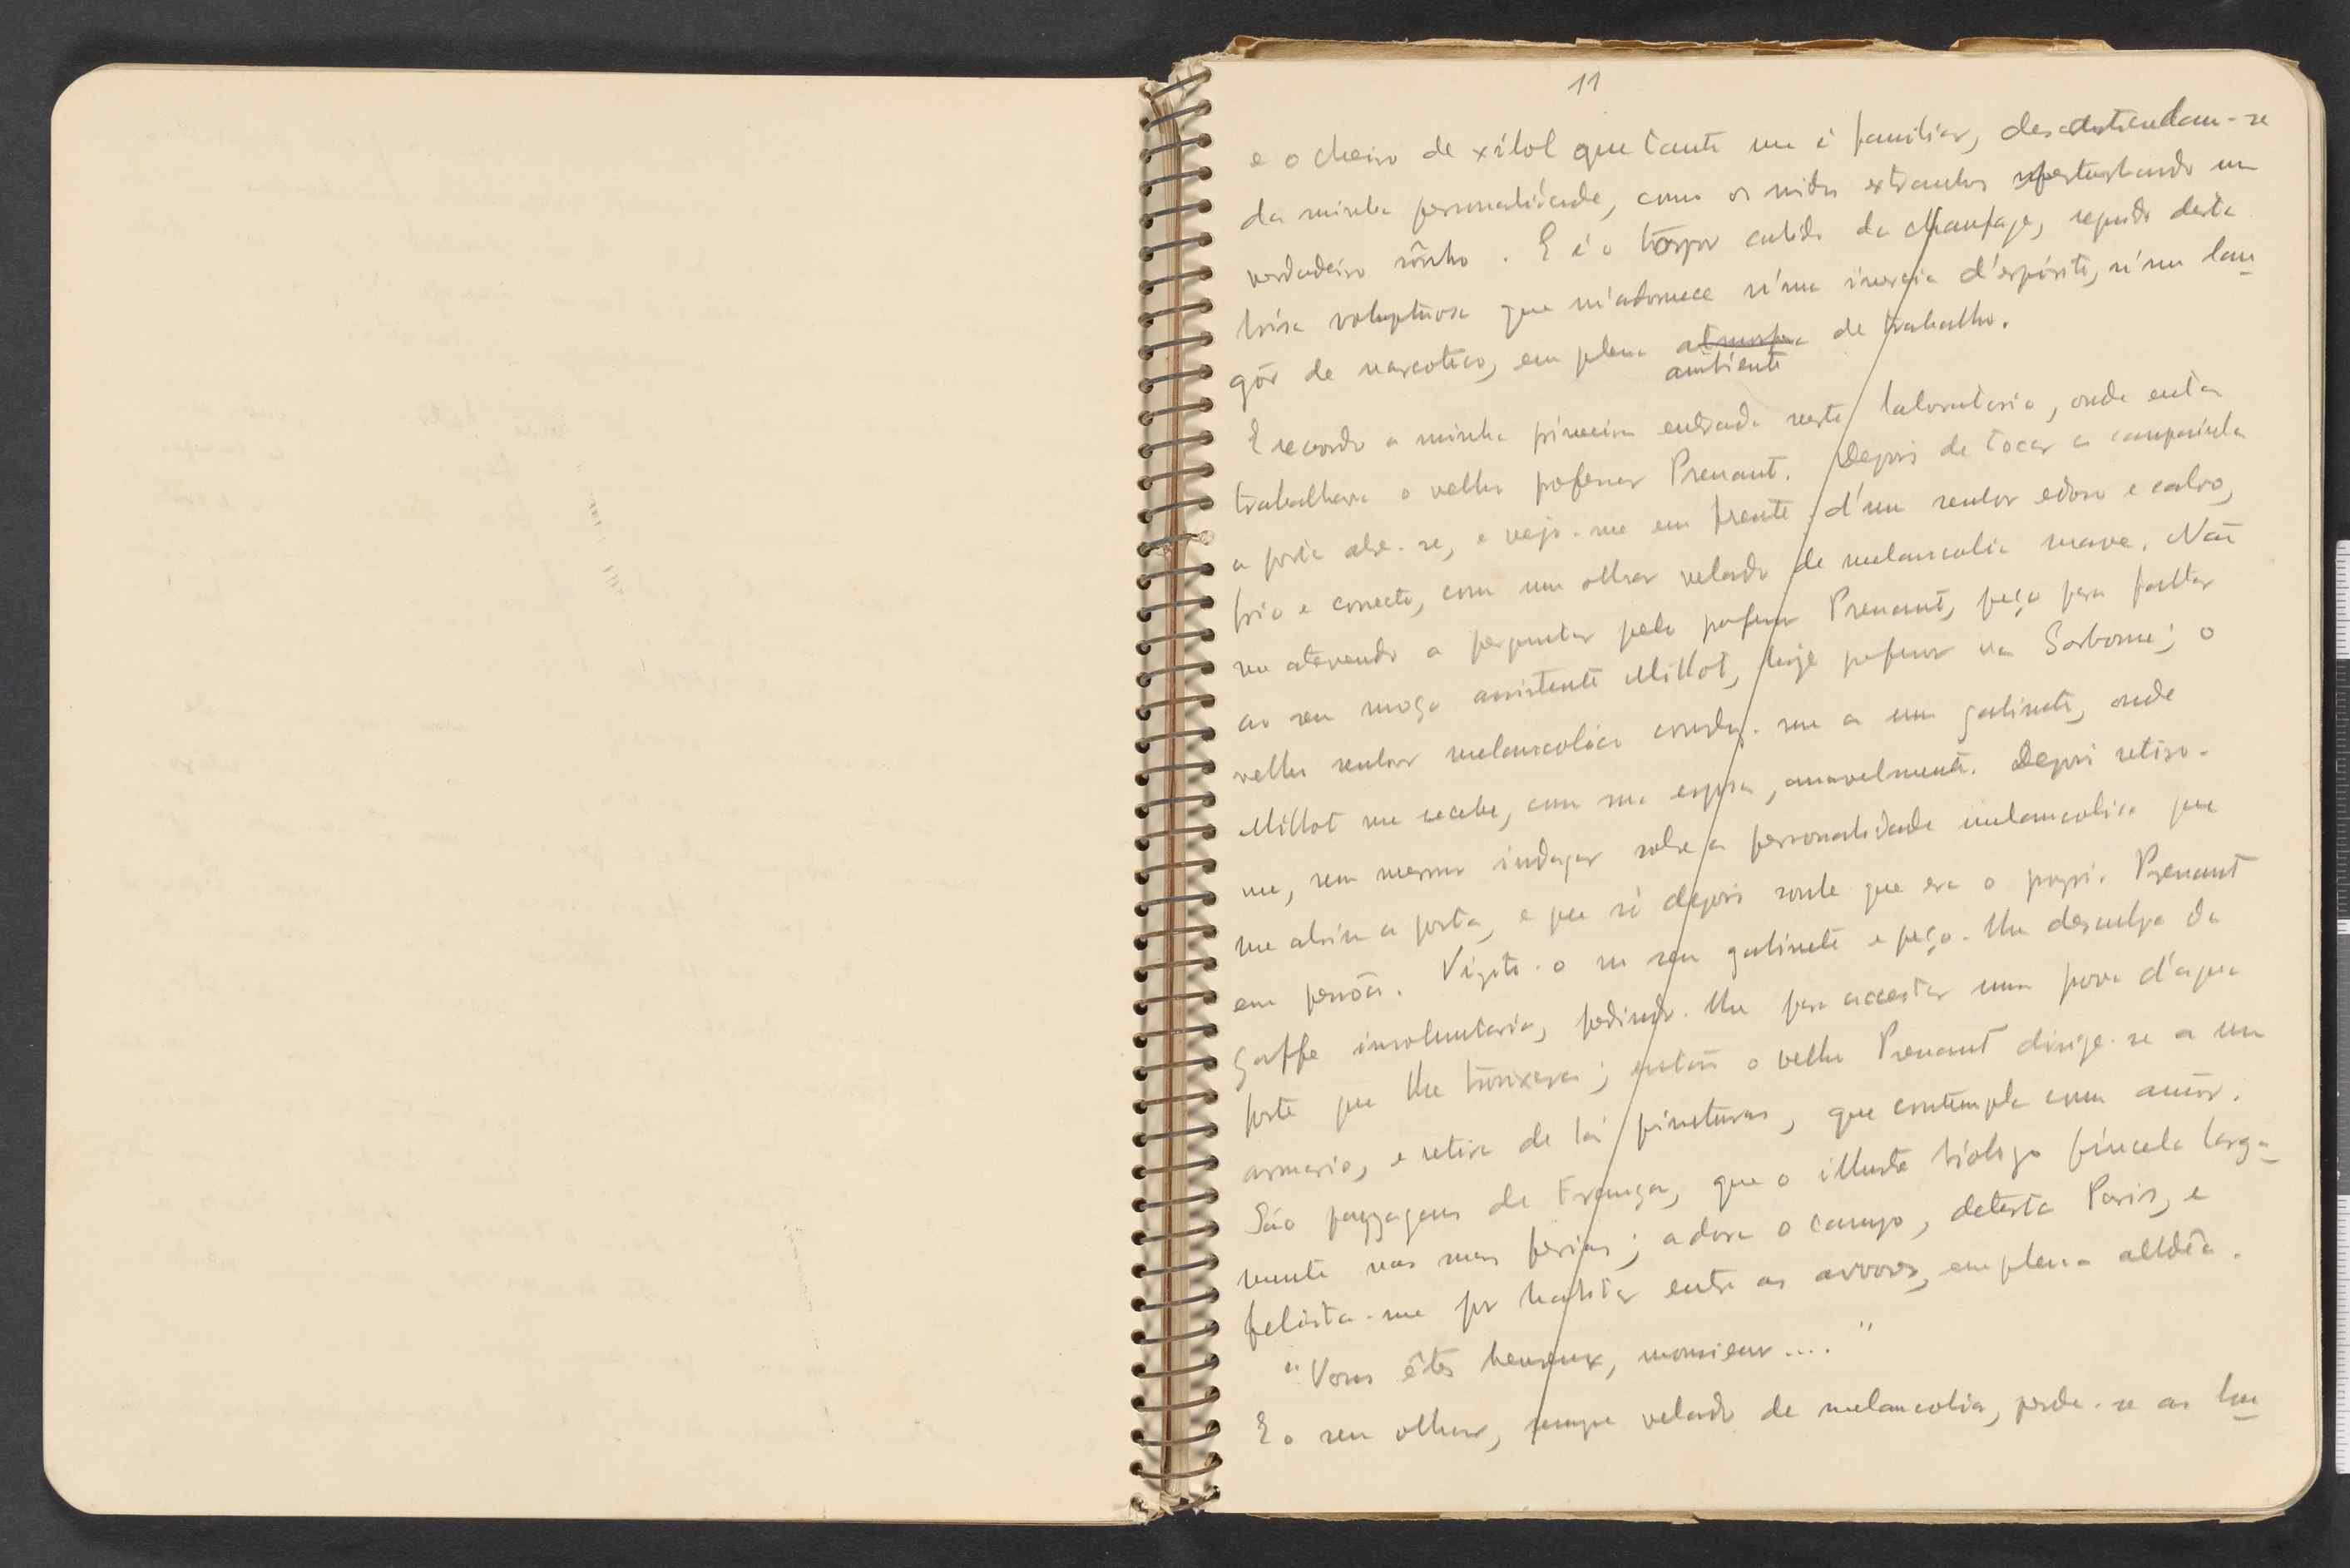 11
e o cheiro de xilol que tanto me é familiar, desentendem-se
da minha personalidade, como os ruidos extranhos perturbando um
verdadeiro sônho. E é o tôrpor calido da chaufage, seguido desta
brisa voluptuosa que m'adormece n'uma inercia d'espirito, n'um lan-
gôr de narcotico, em pleno atmosfera de trabalho.
ambiente
E recordo a minha primeira entrada neste laboratorio, onde então
trabalhava o velho professor Prenant. Depois de tocar a campainha
a porta abre-se, e vejo-me em frente d'um senhor edoso e calvo,
frio e correcto, com um olhar velado de melancolia suave. Não
me atrevendo a perguntar pelo professor Prenant, peço para fallar
ao seu moço assistente Millot, hoje professor na Sorbonne; o
velho senhor melancolico conduz-me a um gabinete, onde
Millot me recebe, com sua esposa, amavelmente. Depois retiro-
me, sem mesmo indagar sobre a personalidade melancolica que
me abriu a porta, e que só depois soube que era o proprio Prenant
em pessôa. Visito-o no seu gabinete e peço-lhe desculpa da
gaffe involuntaria, pedindo-lhe para acceitar uma prova d'agua
forte que lhe trouxera; então o velho Prenant dirige-se a um
armario, e retira de lá pinturas, que contempla com amôr.
São payzagens de França, que o illustre biologo pincela larga-
mente nas suas ferias; adora o campo, detesta Paris, e
felicita-me por habitar entre as arvores, em plena alldêa.
"Vous êtes heureux, monsieur...."
E o seu olhar, sempre velado de melancolia, perde-se ao lon-